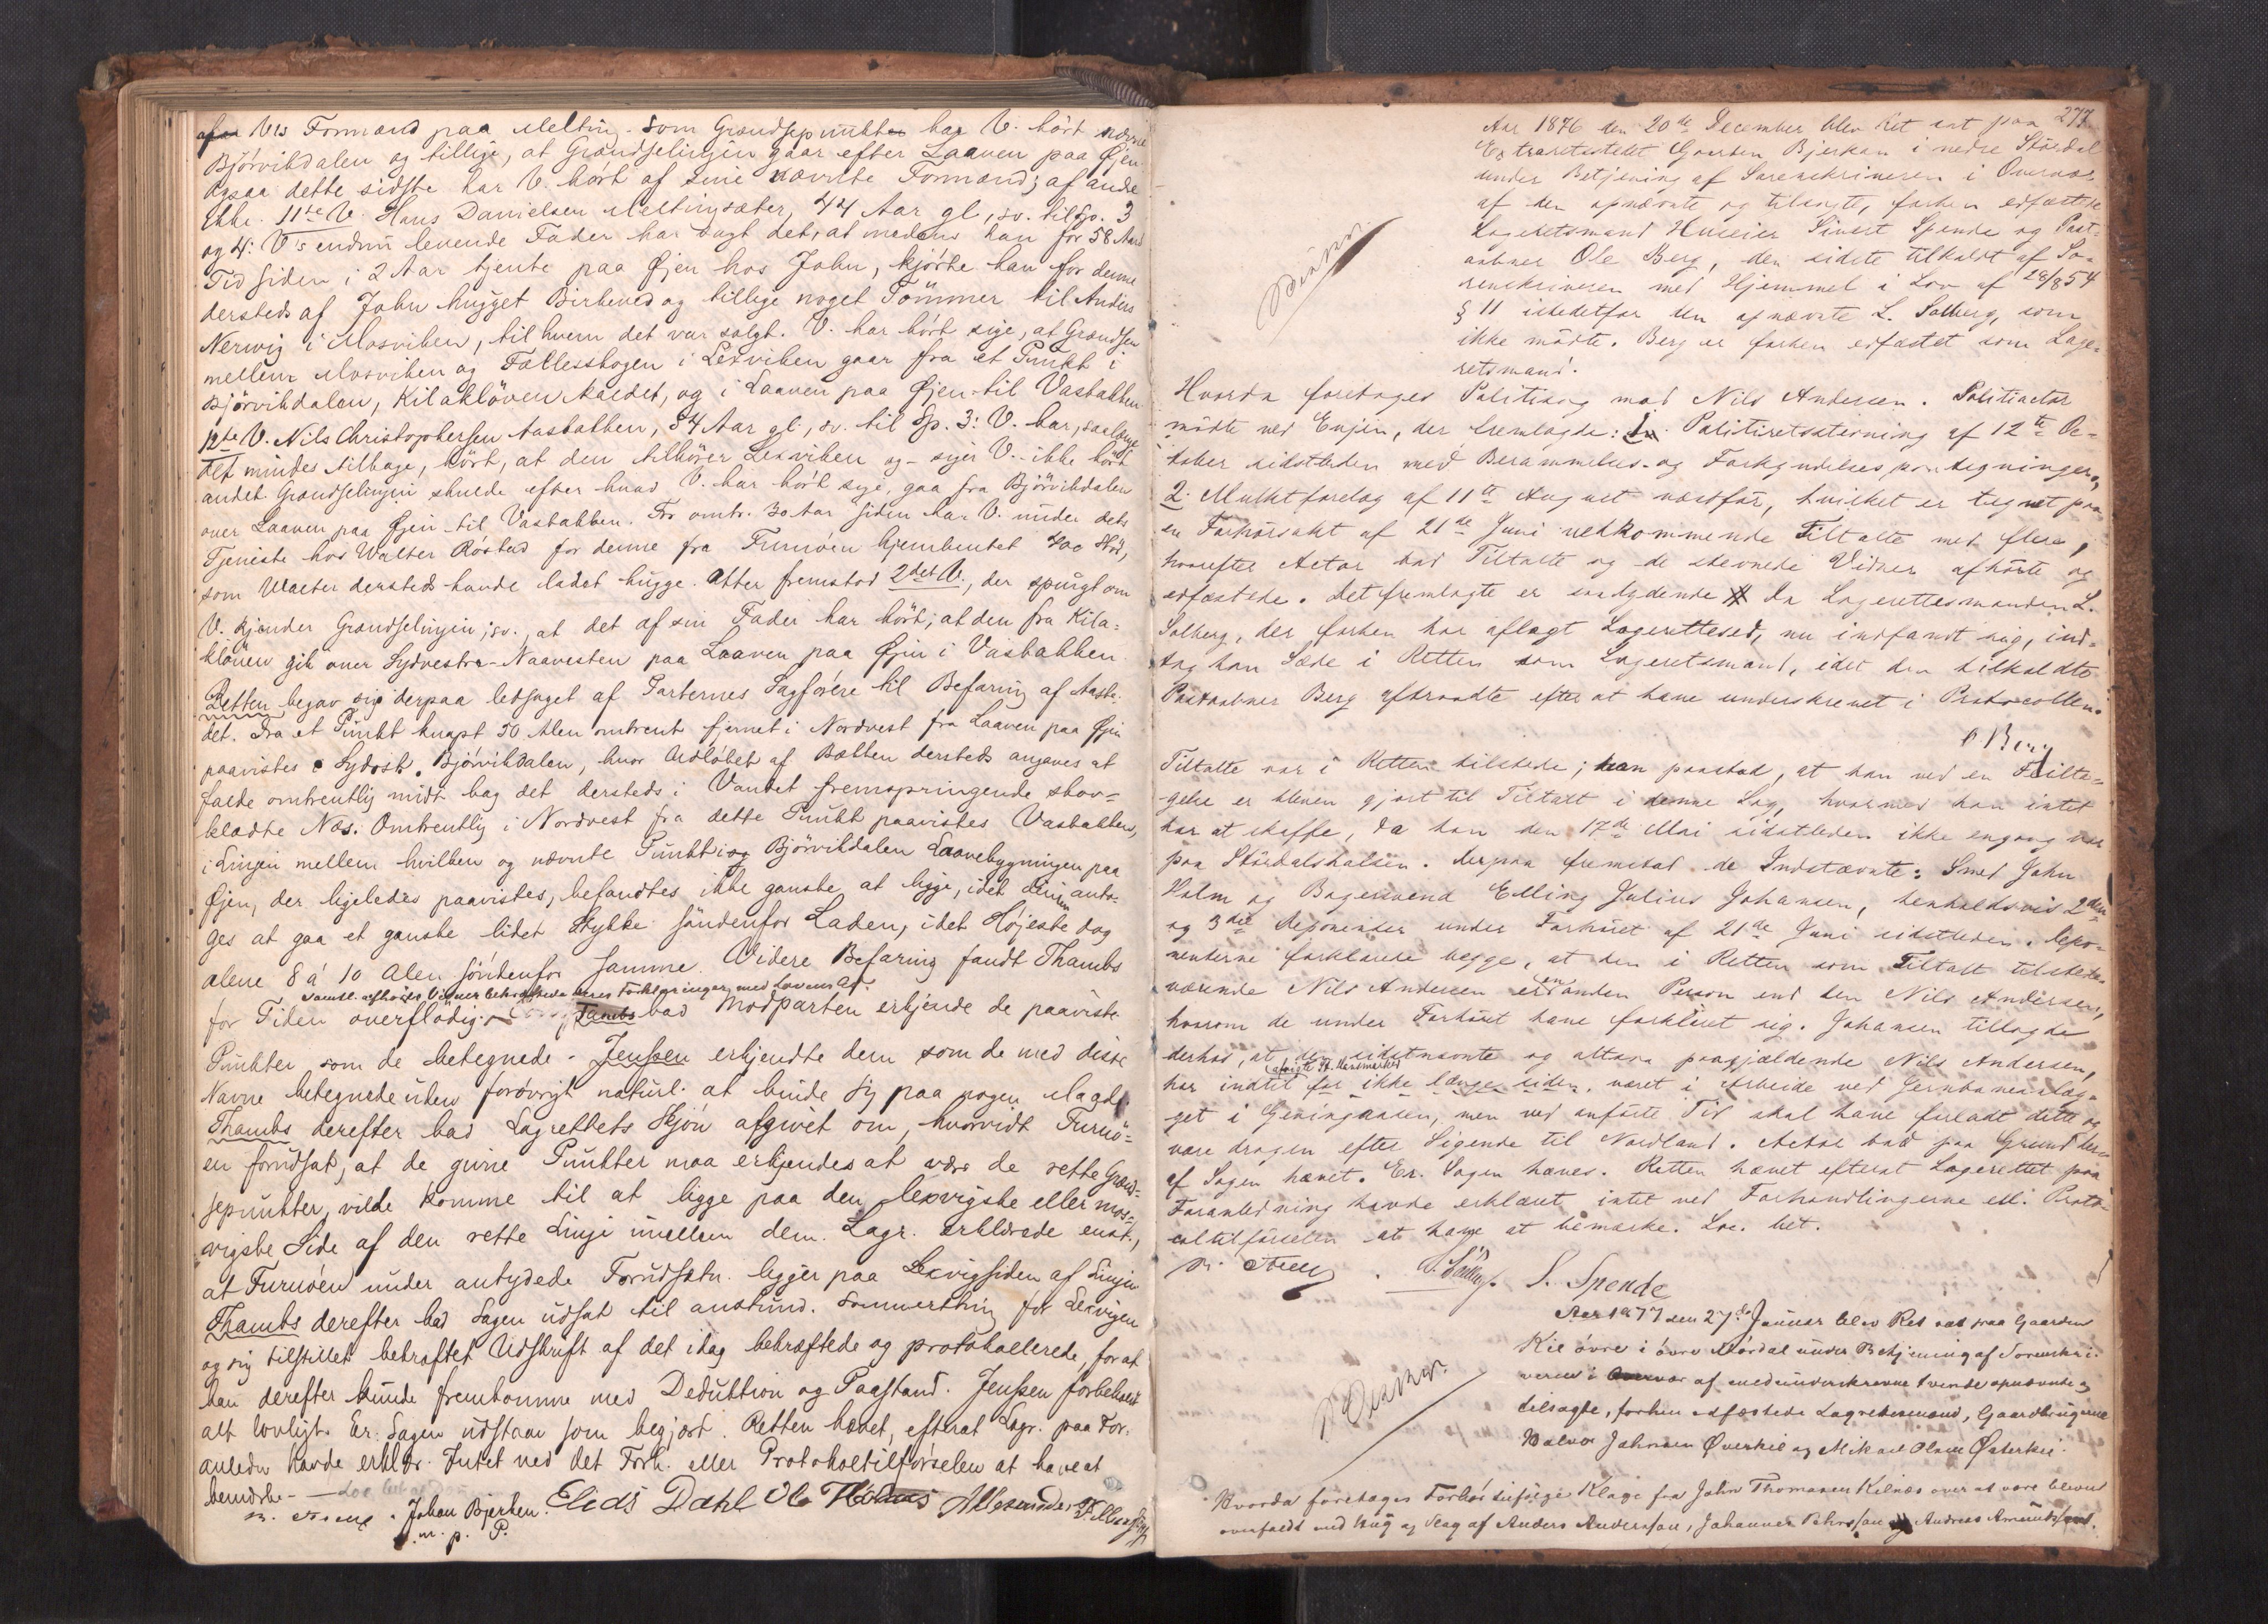 Vis Formænd paa Melting. Som Grændsepunkter har V. hørt nævne
Bjørvikdalen og tillige, at Grændselinjen gaar efter Laaven paa Øjen
Ogsaa dette sidste har V. hørt af sine nævnte Formænd; af andre
Ikke. 11te V. Hans Danielsen Meltingsæter, 44 Aar gl, sv. til Sp. 3
og 4: V's endnu levende Fader har sagt det, at medens han for 58 Aars
Tid siden i 2 Aar tjente paa Øjen hos John, kjørte han for denne
dersteds af John hugget Birkeved og tillige noget Tømmer til Anders
Nervig i Mosviken, til hvem det var solgt. V. har hørt sige, at Grændsen
mellem Mosviken og Fællesskogen i Lexviken gaar fra et Punkt i
Bjørvikdalen, Kilakløven kaldet, og i Laaven paa Øjen til Vasbakken
12te V. Nils Christophersen Aasbakken, 54 Aar gl, sv. til Sp. 3: V. har, saalænge
det mindes tilbage, hørt, at den tilhører Lexviken og - siger V. - ikke hørt
andet. Grændselinjen skulde efter hvad V. har hørt sige, gaa fra Bjørvikdalen
over Laaven paa Øjen til Vasbakken. For omtr. 30 Aar siden har V. under dets
Tjeneste hos Walter Røstad for denne fra Furuøen hjembentet 400
som Walter dersteds havde ladet hugge. Atter fremstod 2det V., der spurgt om
V. kjender Grændselinjen, sv., at det af sin Fader har hørt, at den fra Kila-
kløven gik over Sydvestra-Naavesten paa Laaven paa Øjen i Vasbakken.
Retten begav sig derpaa ledsaget af Parternes Sagførere til Befaring af Aaste-
det. Fra et Punkt knapt 50 Alen omtrent fjernet i Nordvest fra Laaven paa Øjen
paavistes i Sydost. Bjørvikdalen, hvor Udløbet af Bækken dersteds angaves at
falde omtrentlig midt bag det dersteds i Vandet fremspringende skov-
klædte Næs. Omtrentlig i Nordvest fra dette Punkt paavistes Vasbakken,
i Linjen mellem hvilken og nævnte Punkt i og Bjørvikdalen Laavebygningen paa
Øjen, der ligeledes paavistes, befandtes ikke ganske at ligge, idet Linjen anto-
ges at gaa et ganske lidet Stykke søndenfor Laden, idet Højeste dog
alene 8 à 10 Alen søndenfor samme. Videre Befaring fandt Thambs
Samtl. afhørte Vidner bekræftede deres Forklaringer med Lovens Ed.
for Tiden overflødig. Thambs bad Modparten erkjende de paaviste
Punkter som de betegnede. Jenssen erkjendte dem som de med disse
Navne betegnede uden forøvrigt naturl. at binde sig paa nogen Maade.
Thambs derefter bad Lagrettets Skjøn afgivet om, hvorvidt Furuø-
en forudsat, at de givne Punkter maa erkjendes at være de rette Grænd-
sepunkter, vilde komme til at ligge paa den lexvigske eller mos-
vigske Side af den rette Linje imellem dem. Lagr. erklærede enst.,
at Furuøen under antydede Forudsætn. ligger paa Lexvigsiden af Linjen
Thambs derefter bad Sagen udsat til anstund. Sommerthing for Lexvigen
og sig tilstillet bekræftet Udskrift af det idag bekræftede og protokollerede, for at
han derefter kunde fremkomme med Deduktion og Paastand. Jenssen forbeholdt
alt lovligt. Er. Sagen udstaar som begjært. Retten hævet, efterat Lagr. paa For-
anledn. havde erklær. Intet ved det Forh. eller Protokoltilførselen at have at
bemærke.
Johan Bjerken. Elias Dahl Ole
m. p. P.
277
Aar 1876 den 20de December blev Ret sat paa
Extraretsstedet Gaarden Bjerkan i nedre Stördal
under Betjening af Sorenskriveren i Overvær
af den opnævnte og tilsagte, forhen edfæstede
Lagretsmand Huseier Sivert Spende og Post-
aabner Ole Berg, den sidste tilkaldt af So-
renskriveren med Hjemmel i Lov af 28/8 54
§ 11 istedetfor den opnævnte L. Solberg, som
ikke mödte. Berg er forhen edfæstet som Lage-
retsmand.
Hvorda foretages Politisag mod Nils Andersen. Politiactor
mödte ved Enjin, der fremlagde: 1. Politiretsstevning af 12te Oc-
tober sidstleden med Berammelses- og Forkyndelsespaategninger,
2. Mulktforelag af 11te August næstfør, hvilket er tegnet paa
en Forhørsakt af 21de Juni vedkommende Tiltalte med flere,
hvorefter Actor bad Tiltalte og de stevnede Vidner afhørte og
edfæstede. Det fremlagte er saalydende # Da Lagrettesmanden L.
Solberg, der forhen har aflagt Lagrettesed, nu indfandt sig, ind-
tog han Sæde i Retten som Lagretsmand, idet den tilkaldte
Postaabner Berg aftraadte efter at have underskrevet i Protocollen.
O Berg
Tiltalte var i Retten tilstede; han paastod, at han ved en Feilta-
gelse er bleven gjort til Tiltalt i denne Sag, hvormed han intet
har at skaffe, da han den 17de Mai sidstleden ikke engang var
paa Stördalshalsen. Derpaa fremstod de Indstævnte: Smed John
Holm og Bagersvend Elling Julius Johansen, henholdsvis 2den
og 3die Deponenter under Forhöret af 21de Juni sidstleden. Depo-
nenterne forklarede begge, at den i Retten som Tiltalt tilstede-
værende Nils Andersen er en anden Person end den Nils Andersen,
hvorom de under Forhöret have forklaret sig. Johansen tillagde
derhos, at den sidstnævnte og altsaa paagjældende Nils Andersen,
har indtil for ikke længe siden, været i Arbeide ved Jernbaneanlæg-
get i Gevingaasen, men ved anførte Tid skal have forladt dette og
være dragen efter Sigende til Nordland. Actor bad paa Grund her-
af Sagen hævet. Er. Sagen hæves. Retten hævet efterat Lagrettet paa
Foranledning havde erklæret intet ved Forhandlingerne ell. Proto-
coltilførselen at have at bemærke.
S. Spende
Aar 1877 den 27de Januar blev Ret sat paa Gaarden
Kil övre i övre Stördal under Betjening af Sorenskri-
veren i Overvær af medunderskrevne tvende opnævnte og
tilsagte, forhen edfæstede Lagrettesmænd, Gaardbrugerne
Halvor Johnsen Øverkil og Mikael Olsen
Hvorda foretages Forhör ifølge Klage fra John Thomasen Kilnæs over at være bleven
overfaldt med Hug og Slag af Anders Anderssen, Johannes Pehrssen og Andreas Amundsen.